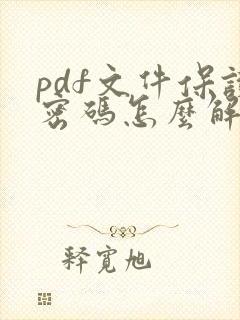 pdf文件保護
密碼怎麼解
釋寬旭